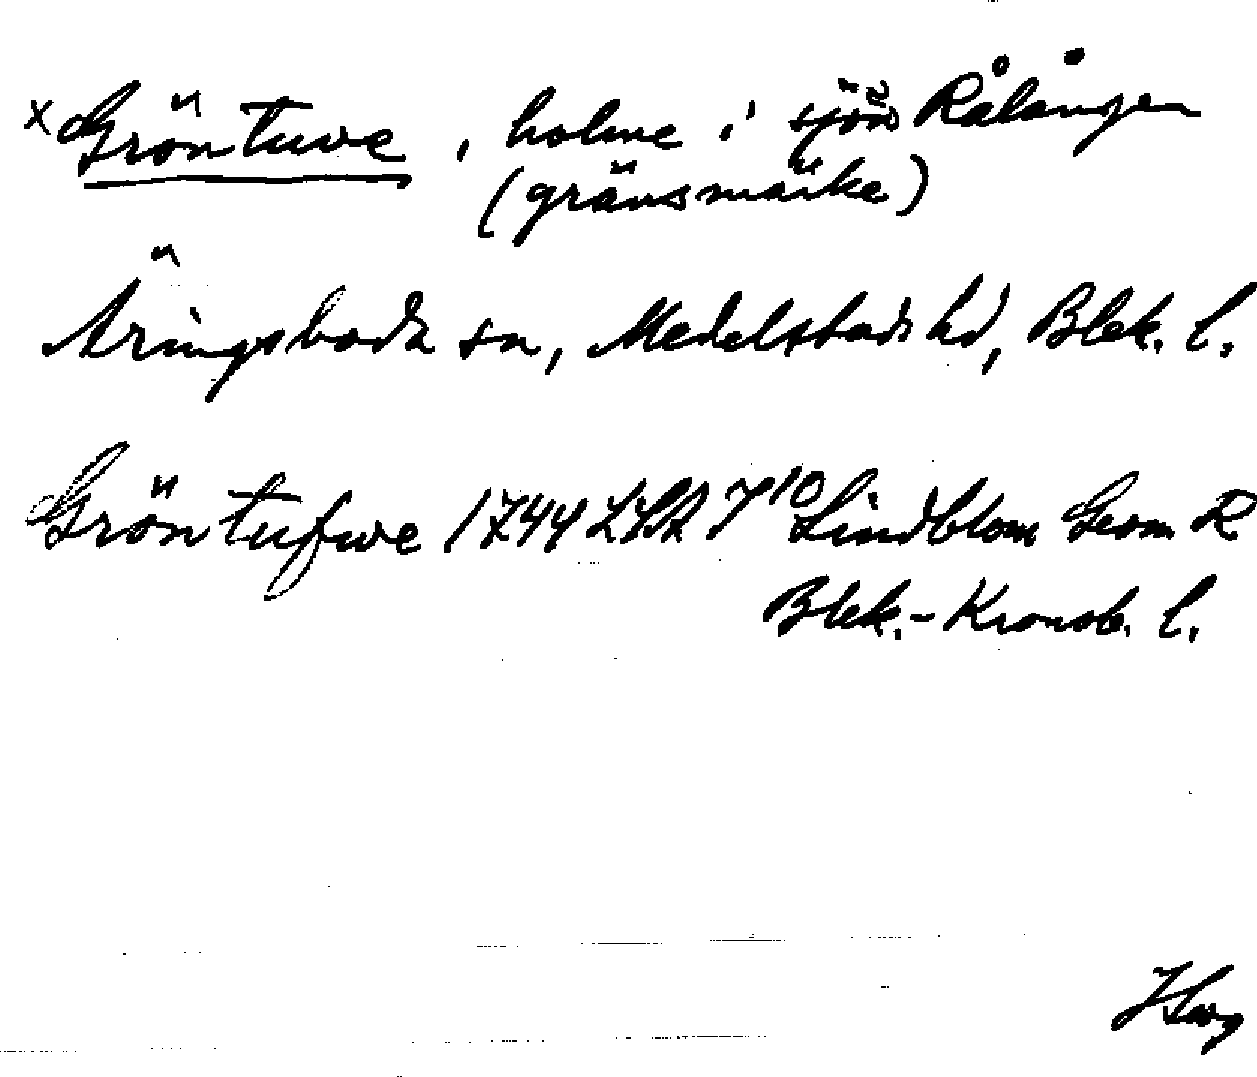 x Gröntuwe, holme i sjön Rålången
(gränsmärke)
Äringsboda sn, Medelstads hd, Blek. l.
Gröntufwe 1744 LSA 7¹⁰ Lindblom Geom R
Blek.-Kronob. l.